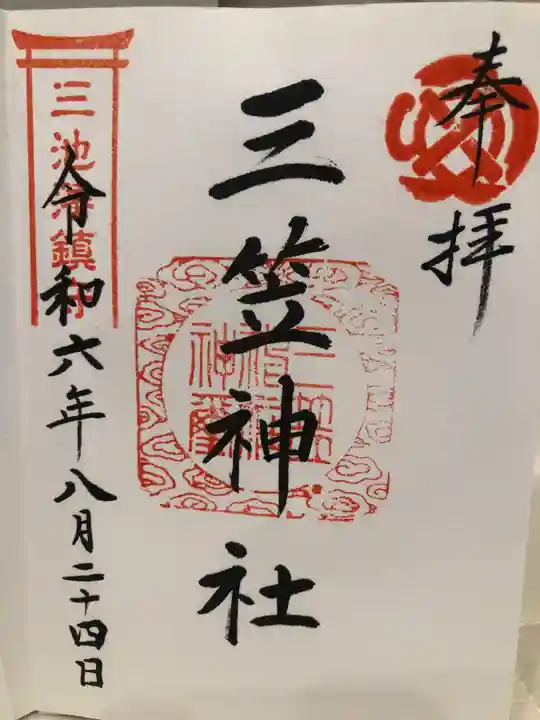 奉拝
三笠神社
三池港鎮守
令和六年八月二十四日